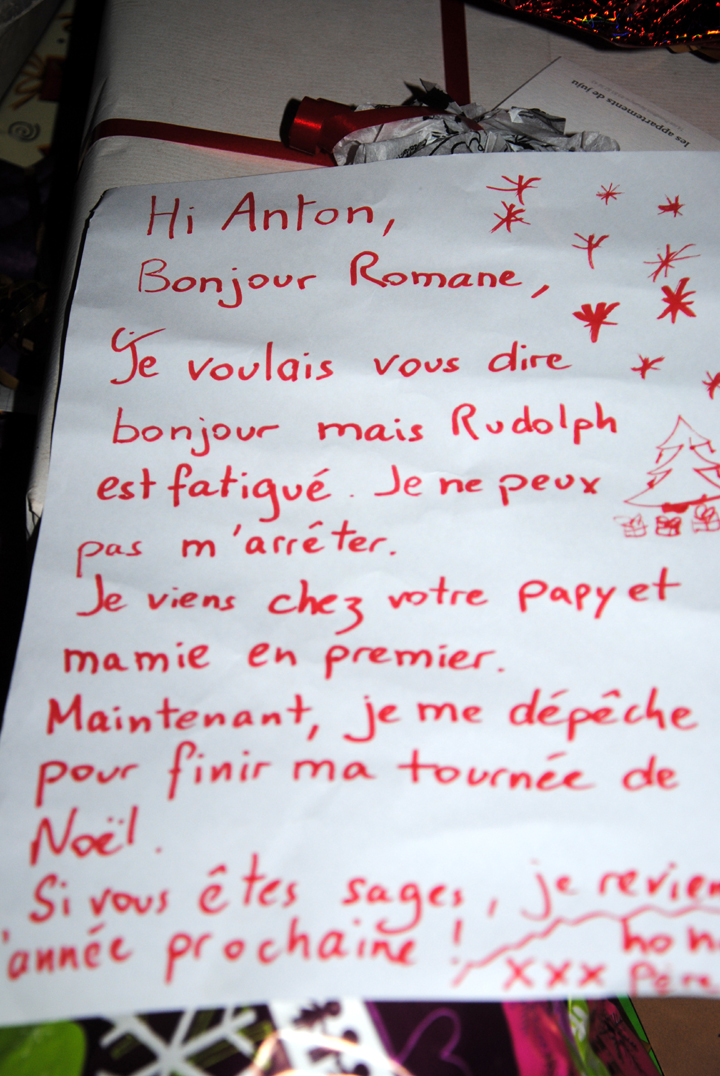 les appartements de juju
Hi Anton,
Bonjour Romane,
Je voulais vous dire
bonjour mais Rudolph
est fatigué. Je ne peux
pas m'arrêter.
Je viens chez votre papy et
mamie en premier.
Maintenant, je me dépêche
pour finir ma tournée de
Noël.
Si vous êtes sages, je revien
l'année prochaine !
ho h
xxx Père